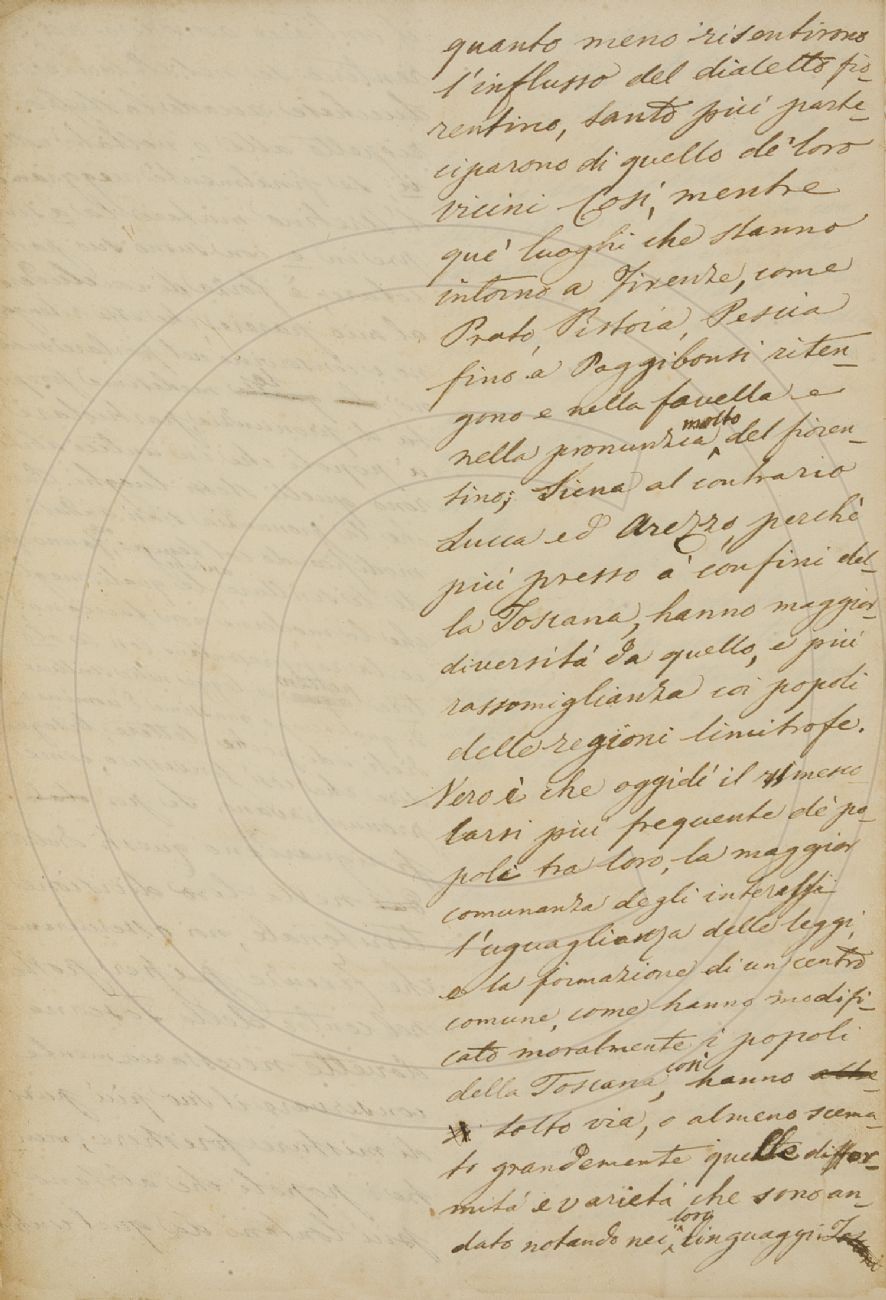 quanto meno risentirono
l'influsso del dialetto fio-
rentino, tanto più parte-
ciparono di quello de' loro
vicini Così, mentre
que' luoghi che stanno
intorno a Firenze, come
Prato, Pistoia, Pescia
fino a Poggibonsi riten-
gono e nella favella e
nella pronunzia molto del fioren-
tino; Siena al contrario
Lucca ed Arezzo, perchè
più presso a' confini del-
la Toscana, hanno maggior
diversità da quello, e più
rassomiglianza coi popoli
delle regioni limitrofe.
Vero è che oggidì il mesco-
larsi più frequente de' po-
poli tra loro, la maggior
comunanza degli interessi
l'uguaglianza delle leggi,
e la formazione di un centro
comune, come hanno modifi-
cato moralmente i popoli
della Toscana, così hanno
tolto via, o almeno scema-
to grandemente quelle diffor-
mità e varietà che sono an-
dato notando nei loro linguaggi